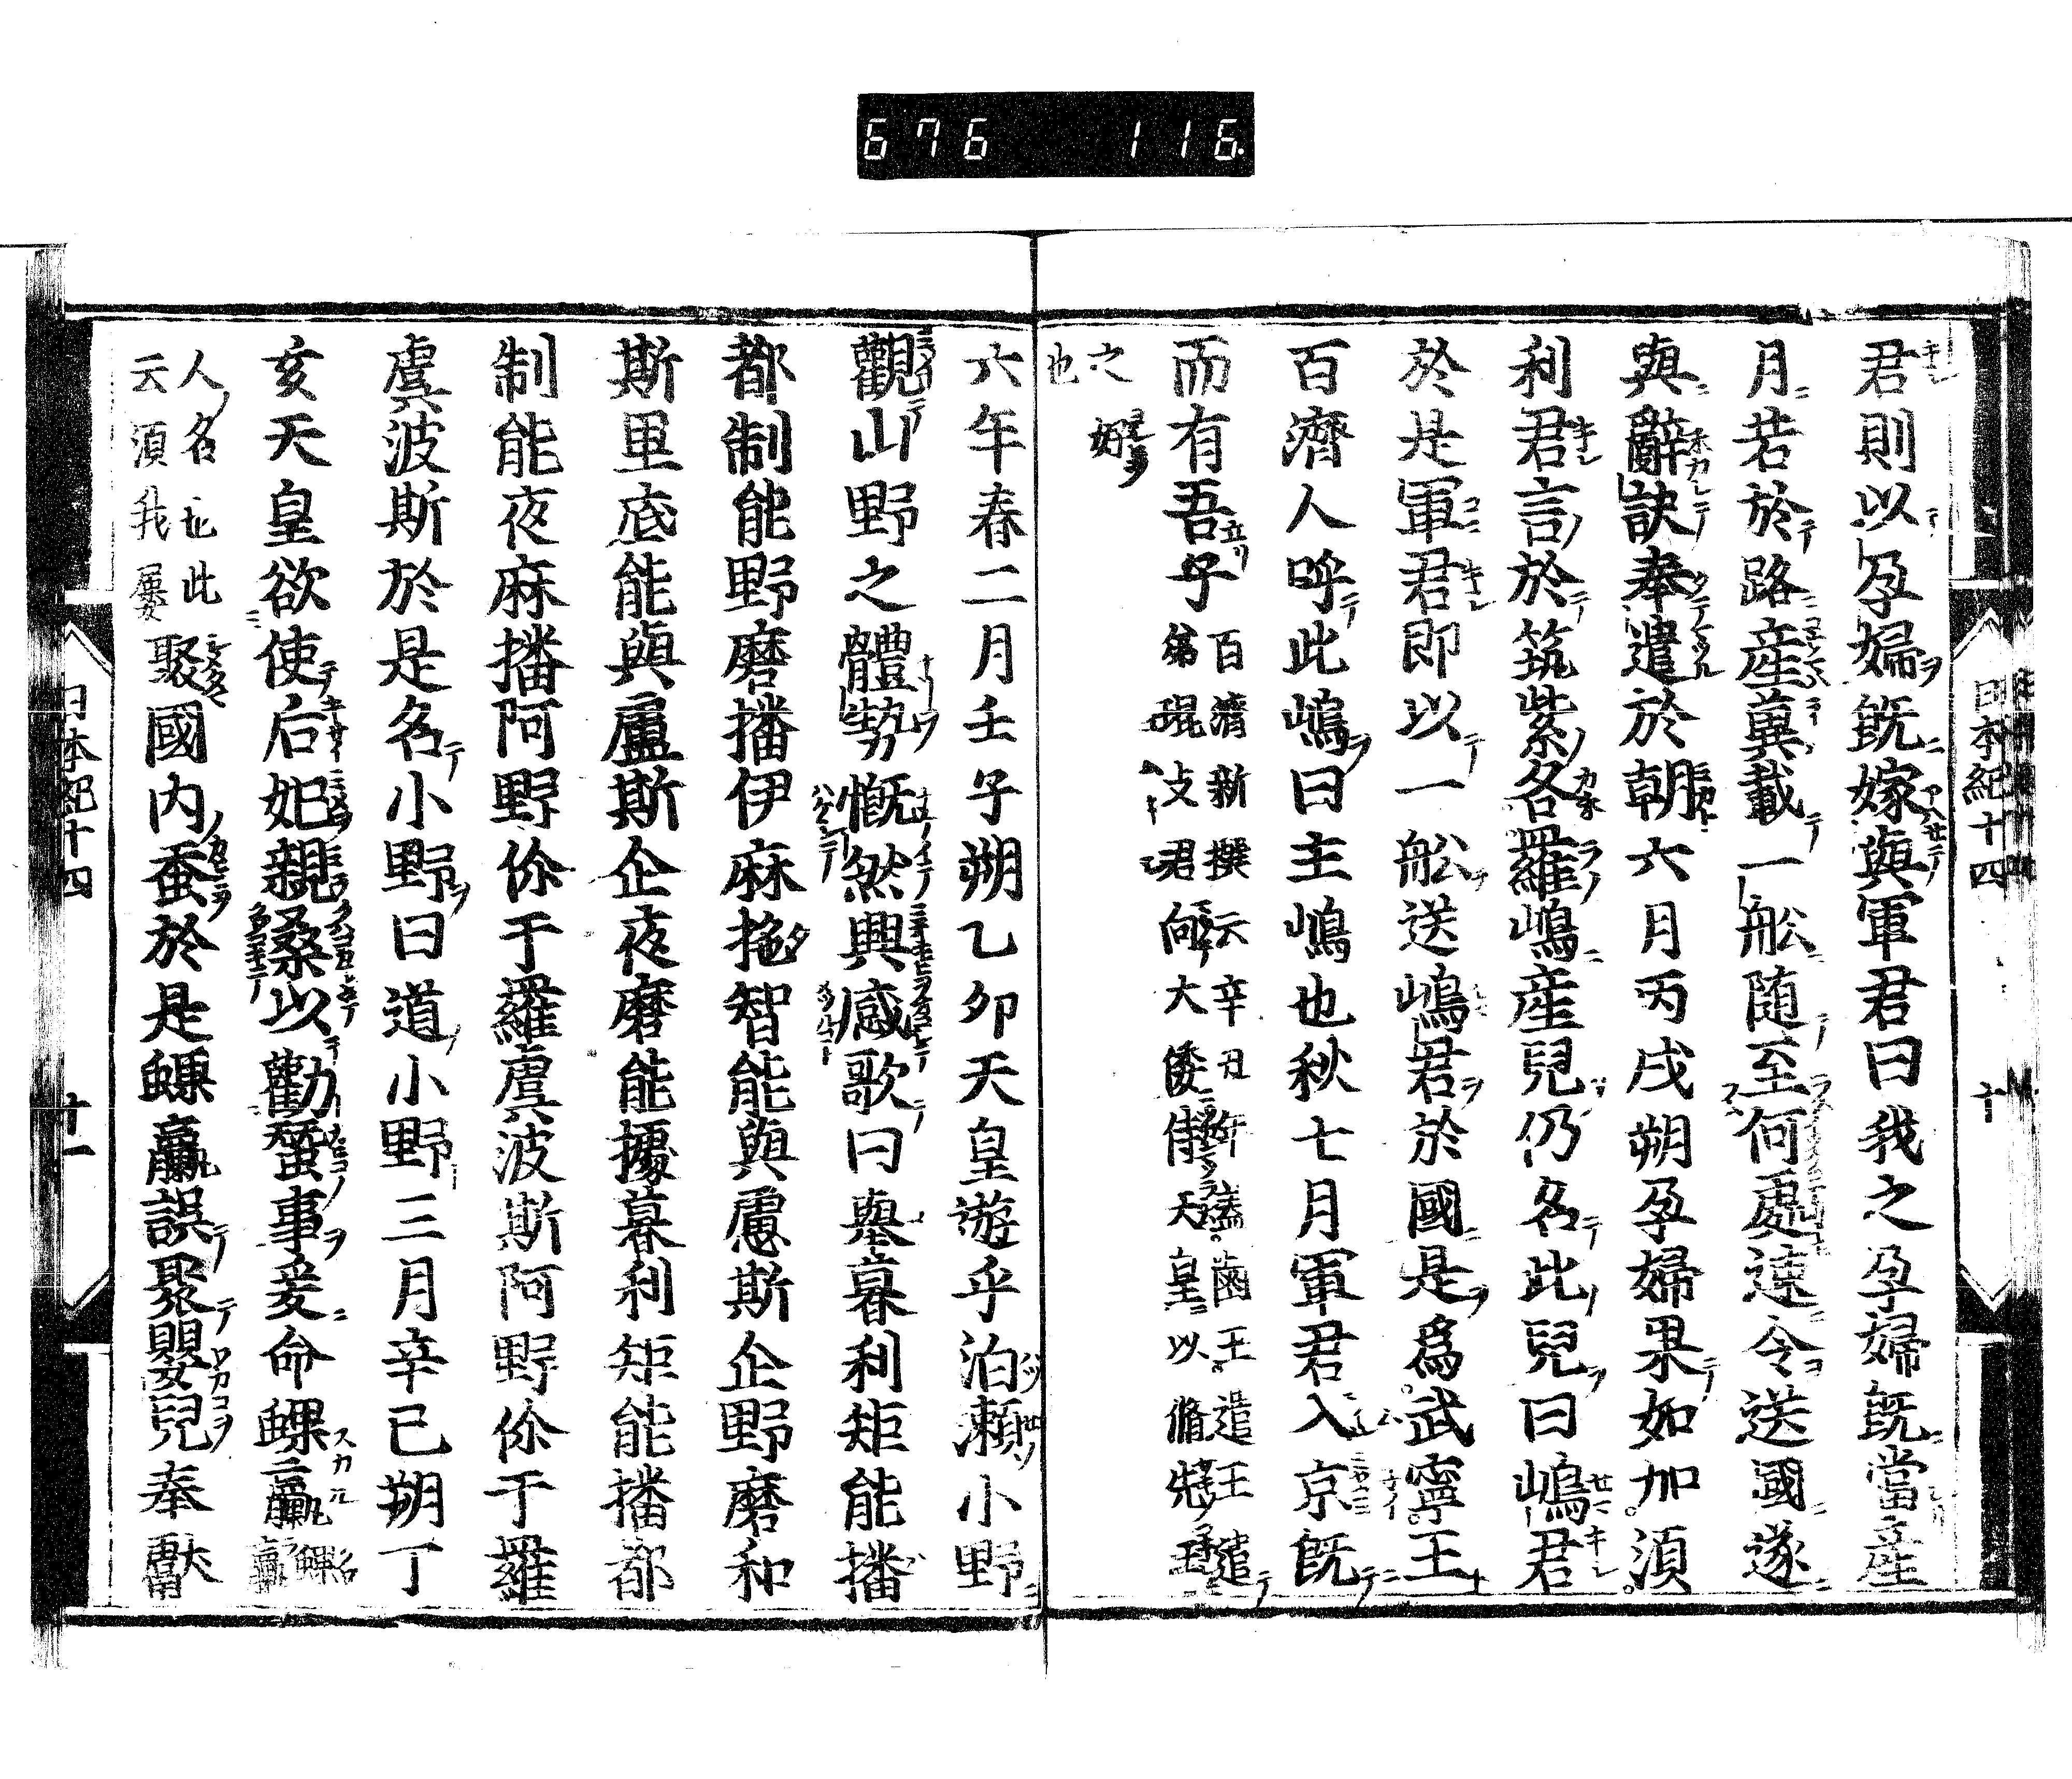 676 116
日本紀十四 十
君則以孕婦既嫁與軍君曰我之孕婦既當產
月若於路產冀載一舩随至何處速令送國遂
與辭訣奉遣於朝六月丙戌朔孕婦果如加須
利君言於筑紫各羅嶋產兒仍名此兒曰嶋君
於是軍君即以一舩送嶋君於國是爲武寧王
百濟人呼此嶋曰主嶋也秋七月軍君入京既
而有吾子百濟新撰云辛丑年盖鹵王遣王遣
弟琨攴君向大倭侍天皇以脩先王
之好
也
六年春二月壬子朔乙卯天皇遊乎泊瀬小野
觀山野之體勢慨然興感歌曰舉暮利矩能播
都制能野磨播伊麻拖智能與慮斯企野磨和
斯里底能與盧斯企夜磨能據暮利矩能播都
制能夜麻播阿野伱于羅虞波斯阿野伱于羅
虞波斯於是名小野曰道小野三月辛巳朔丁
亥天皇欲使后妃親桑以勸蚕事爰命蜾蠃蜾蠃
人名也此
云須我屢聚國内蚕於是蜾蠃誤聚嬰兒奉獻
日本紀十四 十一